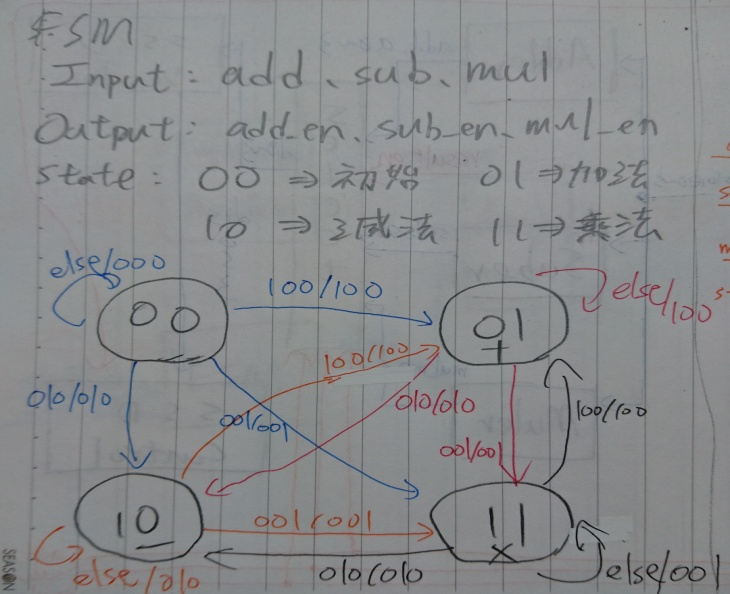 FSM
Input: add、sub、mul
Output: add_en、sub_en、mul_en
state: 00 => 初始 01 => 加法
10 => 減法 11 => 乘法
else/000
00
100/100
01
+
else/100
010/010
001/001
100/100
010/010
001/001
100/100
10
-
001/001
11
×
else/010
010/010
else/001
SEASON